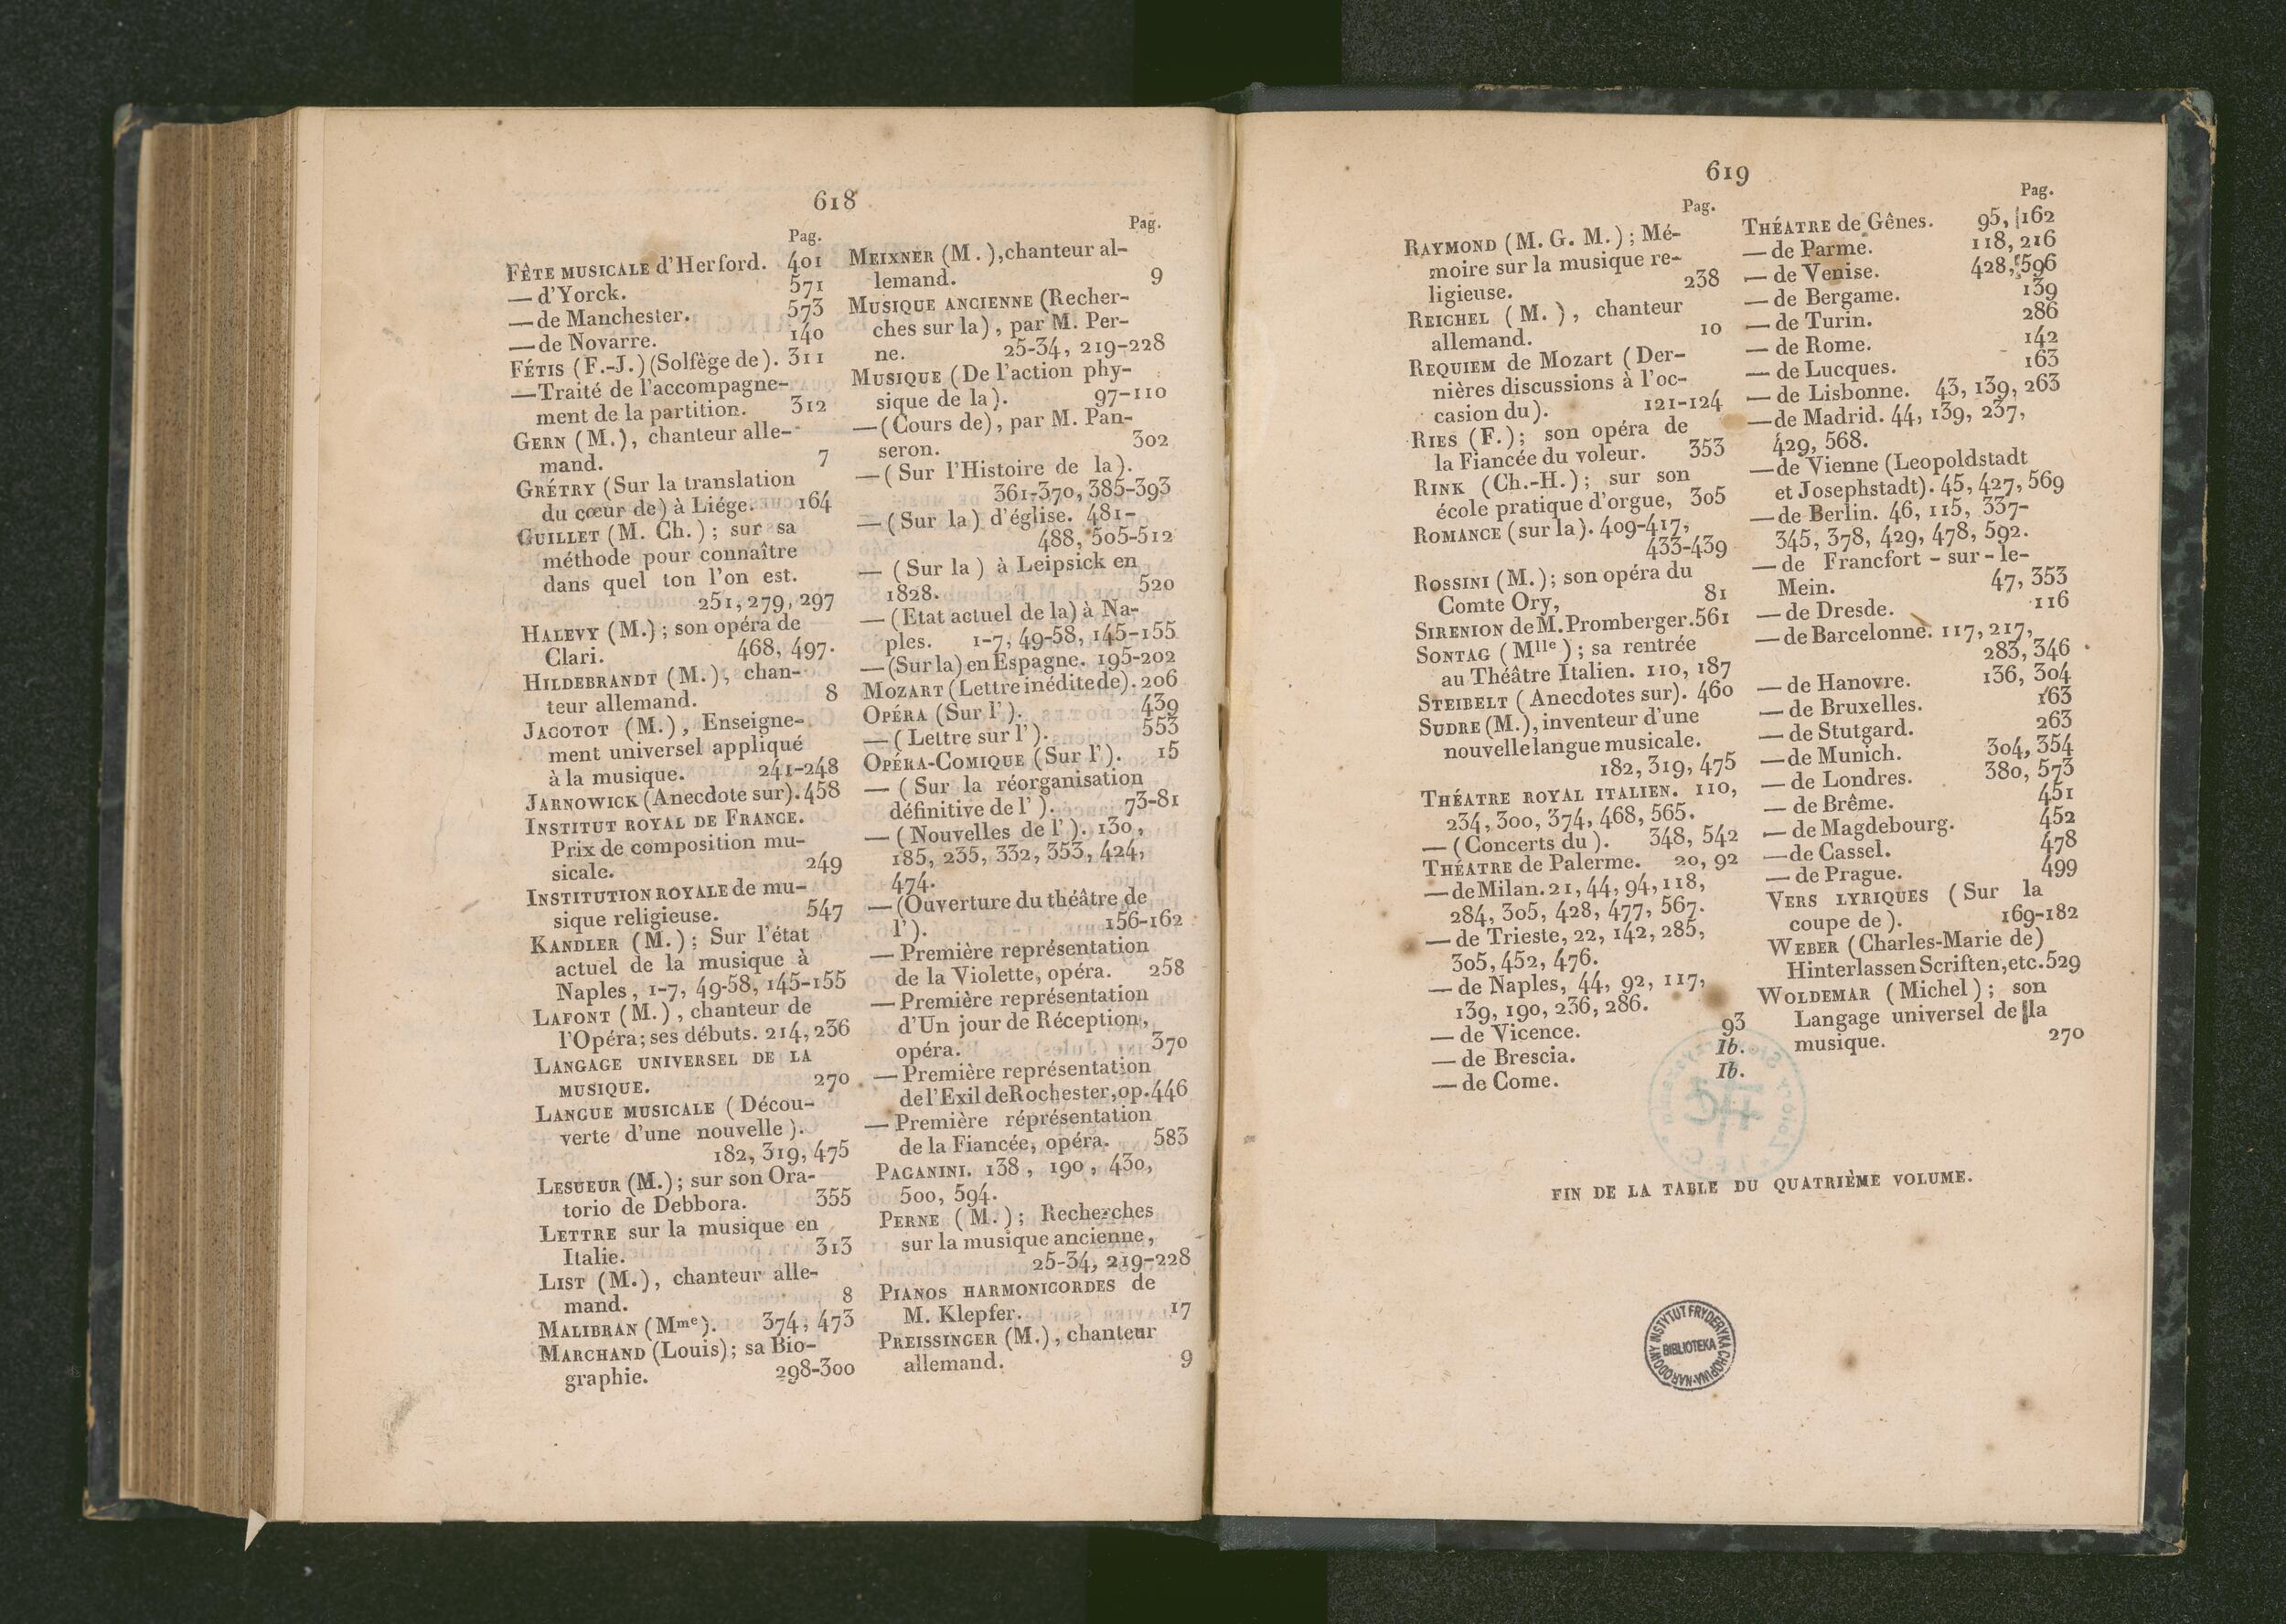 618
Pag.
FÊTE MUSICALE d'Herford. 401
— d'Yorck. 571
— de Manchester. 573
— de Novarre. 140
FÉTIS (F.-J.) (Solfège de). 311
— Traité de l'accompagne-
ment de la partition. 312
GERN (M.), chanteur alle-
mand. 7
GRÉTRY (Sur la translation
du cœur de) à Liége. 164
GUILLET (M. Ch.); sur sa
méthode pour connaître
dans quel ton l'on est.
251, 279, 297
HALEVY (M.); son opéra de
Clari. 468, 497.
HILDEBRANDT (M.), chan-
teur allemand. 8
JACOTOT (M.), Enseigne-
ment universel appliqué
à la musique. 241-248
JARNOWICK (Anecdote sur). 458
INSTITUT ROYAL DE FRANCE.
Prix de composition mu-
sicale. 249
INSTITUTION ROYALE de mu-
sique religieuse. 547
KANDLER (M.); Sur l'état
actuel de la musique à
Naples, 1-7, 49-58, 145-155
LAFONT (M.), chanteur de
l'Opéra; ses débuts. 214, 236
LANGAGE UNIVERSEL DE LA
MUSIQUE. 270
LANGUE MUSICALE (Décou-
verte d'une nouvelle).
182, 319, 475
LESUEUR (M.); sur son Ora-
torio de Debbora. 355
LETTRE sur la musique en
Italie. 313
LIST (M.), chanteur alle-
mand. 8
MALIBRAN (Mme). 374, 473
MARCHAND (Louis); sa Bio-
graphie. 298-300
Pag.
MEIXNER (M.), chanteur al-
lemand. 9
MUSIQUE ANCIENNE (Recher-
ches sur la), par M. Per-
ne. 25-34, 219-228
MUSIQUE (De l'action phy-
sique de la). 97-110
— (Cours de), par M. Pan-
seron. 302
— (Sur l'Histoire de la).
361-370, 385-393
— (Sur la) d'église. 481-
488, 505-512
— (Sur la) à Leipsick en
1828. 520
— (Etat actuel de la) à Na-
ples. 1-7, 49-58, 145-155
— (Sur la) en Espagne. 195-202
MOZART (Lettre inédite de). 206
OPÉRA (Sur l'). 439
— (Lettre sur l'). 553
OPÉRA-COMIQUE (Sur l'). 15
— (Sur la réorganisation
définitive de l'). 73-81
— (Nouvelles de l'). 130,
185, 235, 332, 353, 424,
474.
— (Ouverture du théâtre de
l'). 156-162
— Première représentation
de la Violette, opéra. 258
— Première représentation
d'Un jour de Réception,
opéra. 370
— Première représentation
de l'Exil de Rochester, op. 446
— Première réprésentation
de la Fiancée, opéra. 583
PAGANINI. 138, 190, 430,
500, 594.
PERNE (M.); Recherches
sur la musique ancienne,
25-34, 219-228
PIANOS HARMONICORDES de
M. Klepfer. 17
PREISSINGER (M.), chanteur
allemand. 9
619
Pag.
RAYMOND (M. G. M.); Mé-
moire sur la musique re-
ligieuse. 238
REICHEL (M.), chanteur
allemand. 10
REQUIEM de Mozart (Der-
nières discussions à l'oc-
casion du). 121-124
RIES (F.); son opéra de
la Fiancée du voleur. 353
RINK (Ch.-H.); sur son
école pratique d'orgue, 305
ROMANCE (sur la). 409-417,
433-439
ROSSINI (M.); son opéra du
Comte Ory, 81
SIRENION de M. Promberger. 561
SONTAG (Mlle); sa rentrée
au Théâtre Italien. 110, 187
STEIBELT (Anecdotes sur). 460
SUDRE (M.), inventeur d'une
nouvelle langue musicale.
182, 319, 475
THÉATRE ROYAL ITALIEN. 110,
234, 300, 374, 468, 565.
— (Concerts du). 348, 542
THÉATRE de Palerme. 20, 92
— de Milan. 21, 44, 94, 118,
284, 305, 428, 477, 567.
— de Trieste, 22, 142, 285,
305, 452, 476.
— de Naples, 44, 92, 117,
139, 190, 236, 286.
— de Vicence. 93
— de Brescia. Ib.
— de Come. Ib.
Pag.
THÉATRE de Gênes. 95, 162
— de Parme. 118, 216
— de Venise. 428, 596
— de Bergame. 139
— de Turin. 286
— de Rome. 142
— de Lucques. 163
— de Lisbonne. 43, 139, 263
— de Madrid. 44, 139, 237,
429, 568.
— de Vienne (Leopoldstadt
et Josephstadt). 45, 427, 569
— de Berlin. 46, 115, 337-
345, 378, 429, 478, 592.
— de Francfort-sur-le-
Mein. 47, 353
— de Dresde. 116
— de Barcelonne. 117, 217,
283, 346
— de Hanovre. 136, 304
— de Bruxelles. 163
— de Stutgard. 263
— de Munich. 304, 354
— de Londres. 380, 573
— de Brême. 451
— de Magdebourg. 452
— de Cassel. 478
— de Prague. 499
VERS LYRIQUES (Sur la
coupe de). 169-182
WEBER (Charles-Marie de)
Hinterlassen Scriften, etc. 529
WOLDEMAR (Michel); son
Langage universel de la
musique. 270
FIN DE LA TABLE DU QUATRIÈME VOLUME.
NARODOWY INSTYTUT FRYDERYKA CHOPINA
BIBLIOTEKA